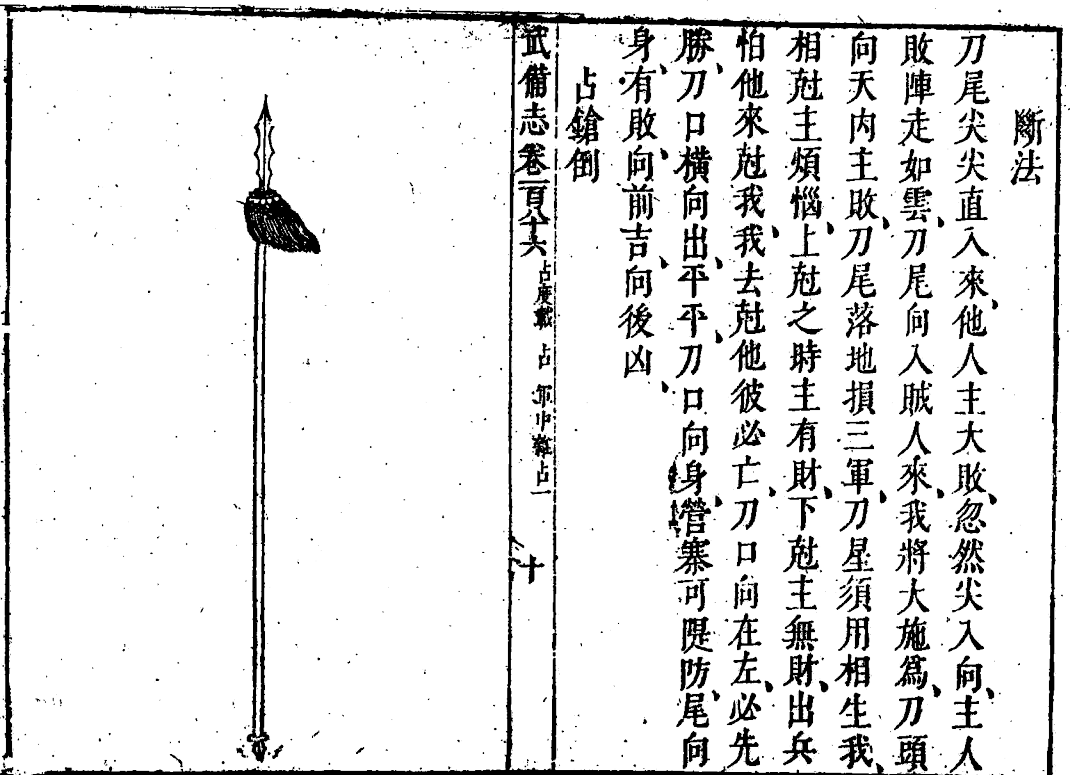 斷法
刀尾尖尖直入來、他人主大敗、忽然尖入向、主人
敗陣走如雲、刀尾向入賊人來、我將大施爲、刀頭
向天內主敗、刀尾落地損三軍、刀星須用相生我、
相尅主煩惱、上尅之時主有財、下尅主無財、出兵
怕他來尅我、我去尅他彼必亡、刀口向在左、必先
勝、刀口橫向出、平平、刀口向身、營寨可隄防、尾向
身、有敗、向前吉、向後凶、
占鎗倒
武備志卷一百八十六 占度載 占 軍中雜占一 十